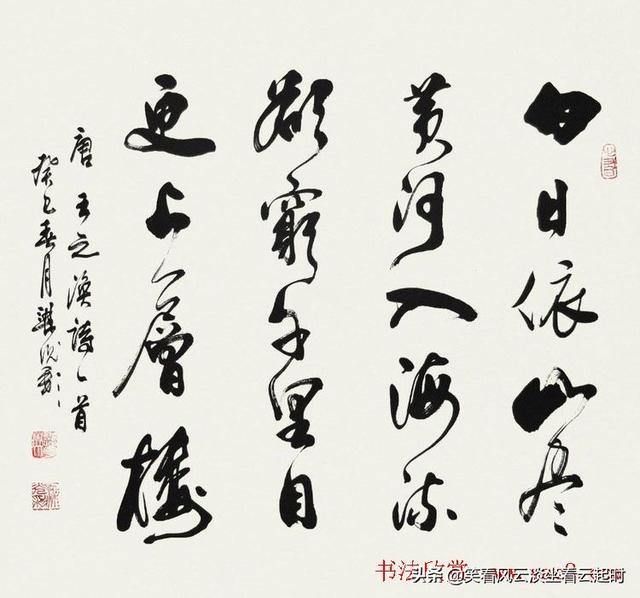 白日依山尽
黄河入海流
欲窮千里目
更上一層樓
唐王之渙詩一首
癸巳春月
书法欣赏
头条 @笑看风云淡坐看云起时